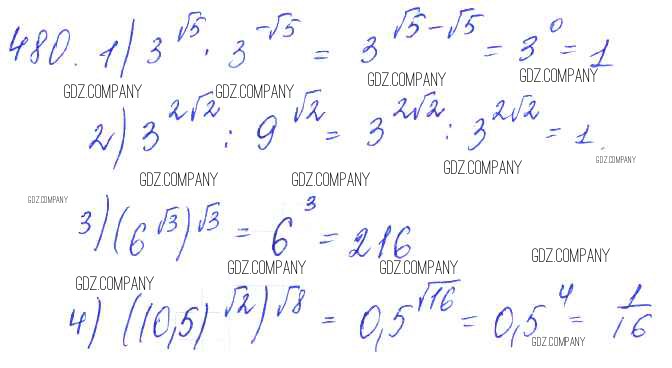 480. 1) 3^√5 · 3^-√5 = 3^√5-√5 = 3^0 = 1
GDZ.COMPANY GDZ.COMPANY GDZ.COMPANY GDZ.COMPANY
2) 3^2√2 : 9^√2 = 3^2√2 : 3^2√2 = 1.
GDZ.COMPANY GDZ.COMPANY GDZ.COMPANY GDZ.COMPANY
GDZ.COMPANY
3) (6^√3)^√3 = 6^3 = 216
GDZ.COMPANY GDZ.COMPANY GDZ.COMPANY GDZ.COMPANY
4) ((0,5)^√2)^√8 = 0,5^√16 = 0,5^4 = 1/16
GDZ.COMPANY